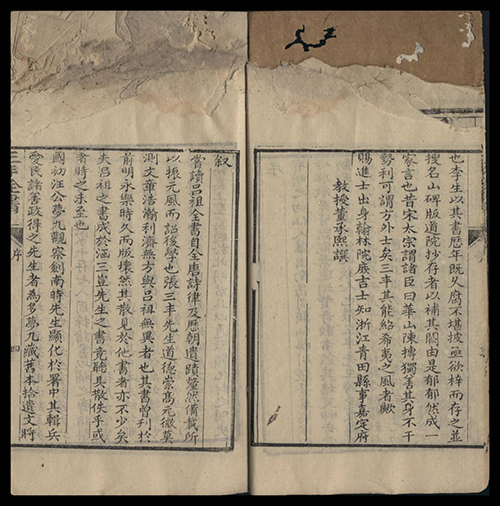 也李生以其書歷年既久腐不堪故亟欲梓而存之並
授名山碑版道院抄存者以補其闕由是郁郁然成一
家言也昔宋太宗謂諸臣曰華山陳摶獨善其身不干
勢利可謂方外士矣三丰其能紹希夷之風者歟
賜進士出身翰林院庶吉士知浙江青田縣事嘉定府
教授董承熙譔
叙
嘗讀呂祖全書自全唐詩律及歷朝遺蹟釐然備載所
以振元風而詔後學也張三丰先生道德崇髙元微莫
測文章浩瀚利濟無方與呂祖無異者也其書曽刋於
前明永樂時久而版壊然其散見於他書者亦不少矣
夫呂祖之書成於涵三豈先生之書竟聽其散佚乎或
者時之未至也
國初汪公夢九觀察劍南時先生顯化於署中其輯兵
愛民諸善政得之先生者為多夢九藏舊本拾遺文將
三丰全書
序
四